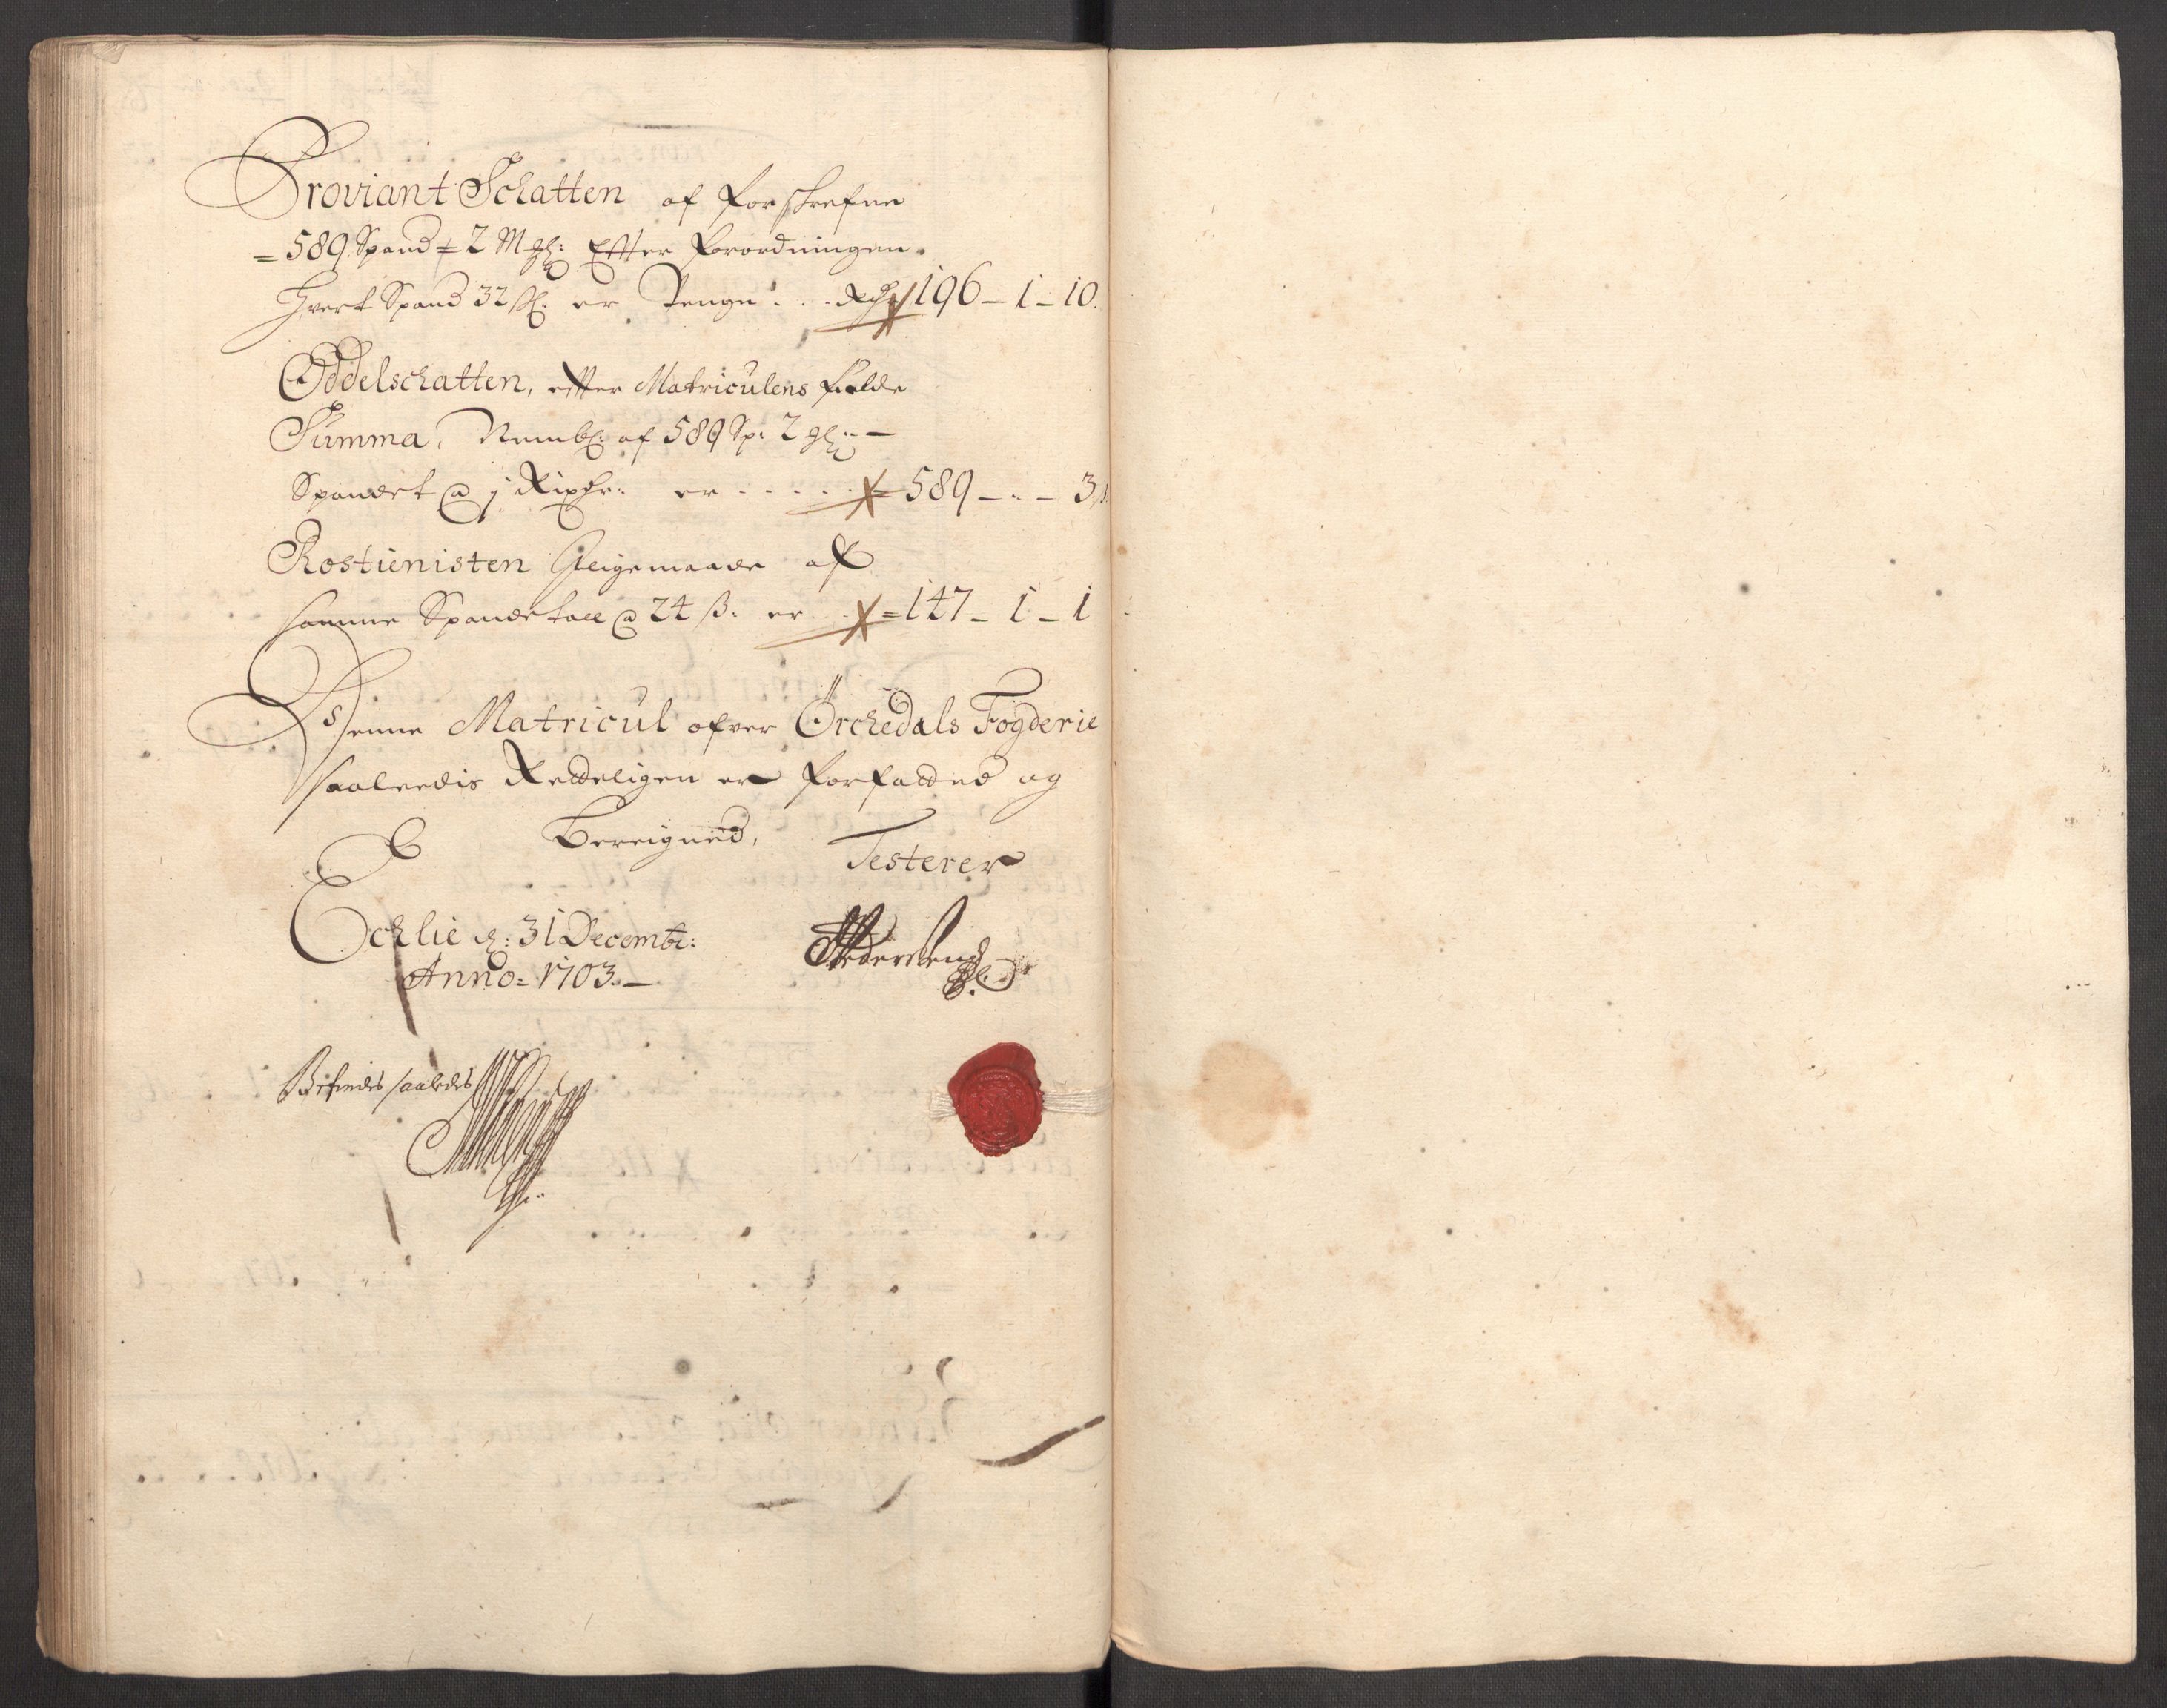 Proviant Schatten af forschrefne
= 589 Spand = 2 Mgl: Efter forordningen
Hvert Spand 32 sk: er Penge . . . Rdr 196 – 1 – 10.
Oddelschatten, efter Matriculens fulde
Summa, Nembl: af 589 Sp: 2 gl: –
Spandet @ 1 Rixdr: er . . . . . = 589 – . – 3
Rostienisten Ligemaade af
samme Spandetall @ 24 ß: er . . = 147 – 1 – 1
Denne Matricul ofver Örchedals Fogderie
saaledis Reddeligen er forfatted og
Bereigned, Testerer
Echlie d: 31 Decembr:
Anno = 1703. –
Befindes saaledes